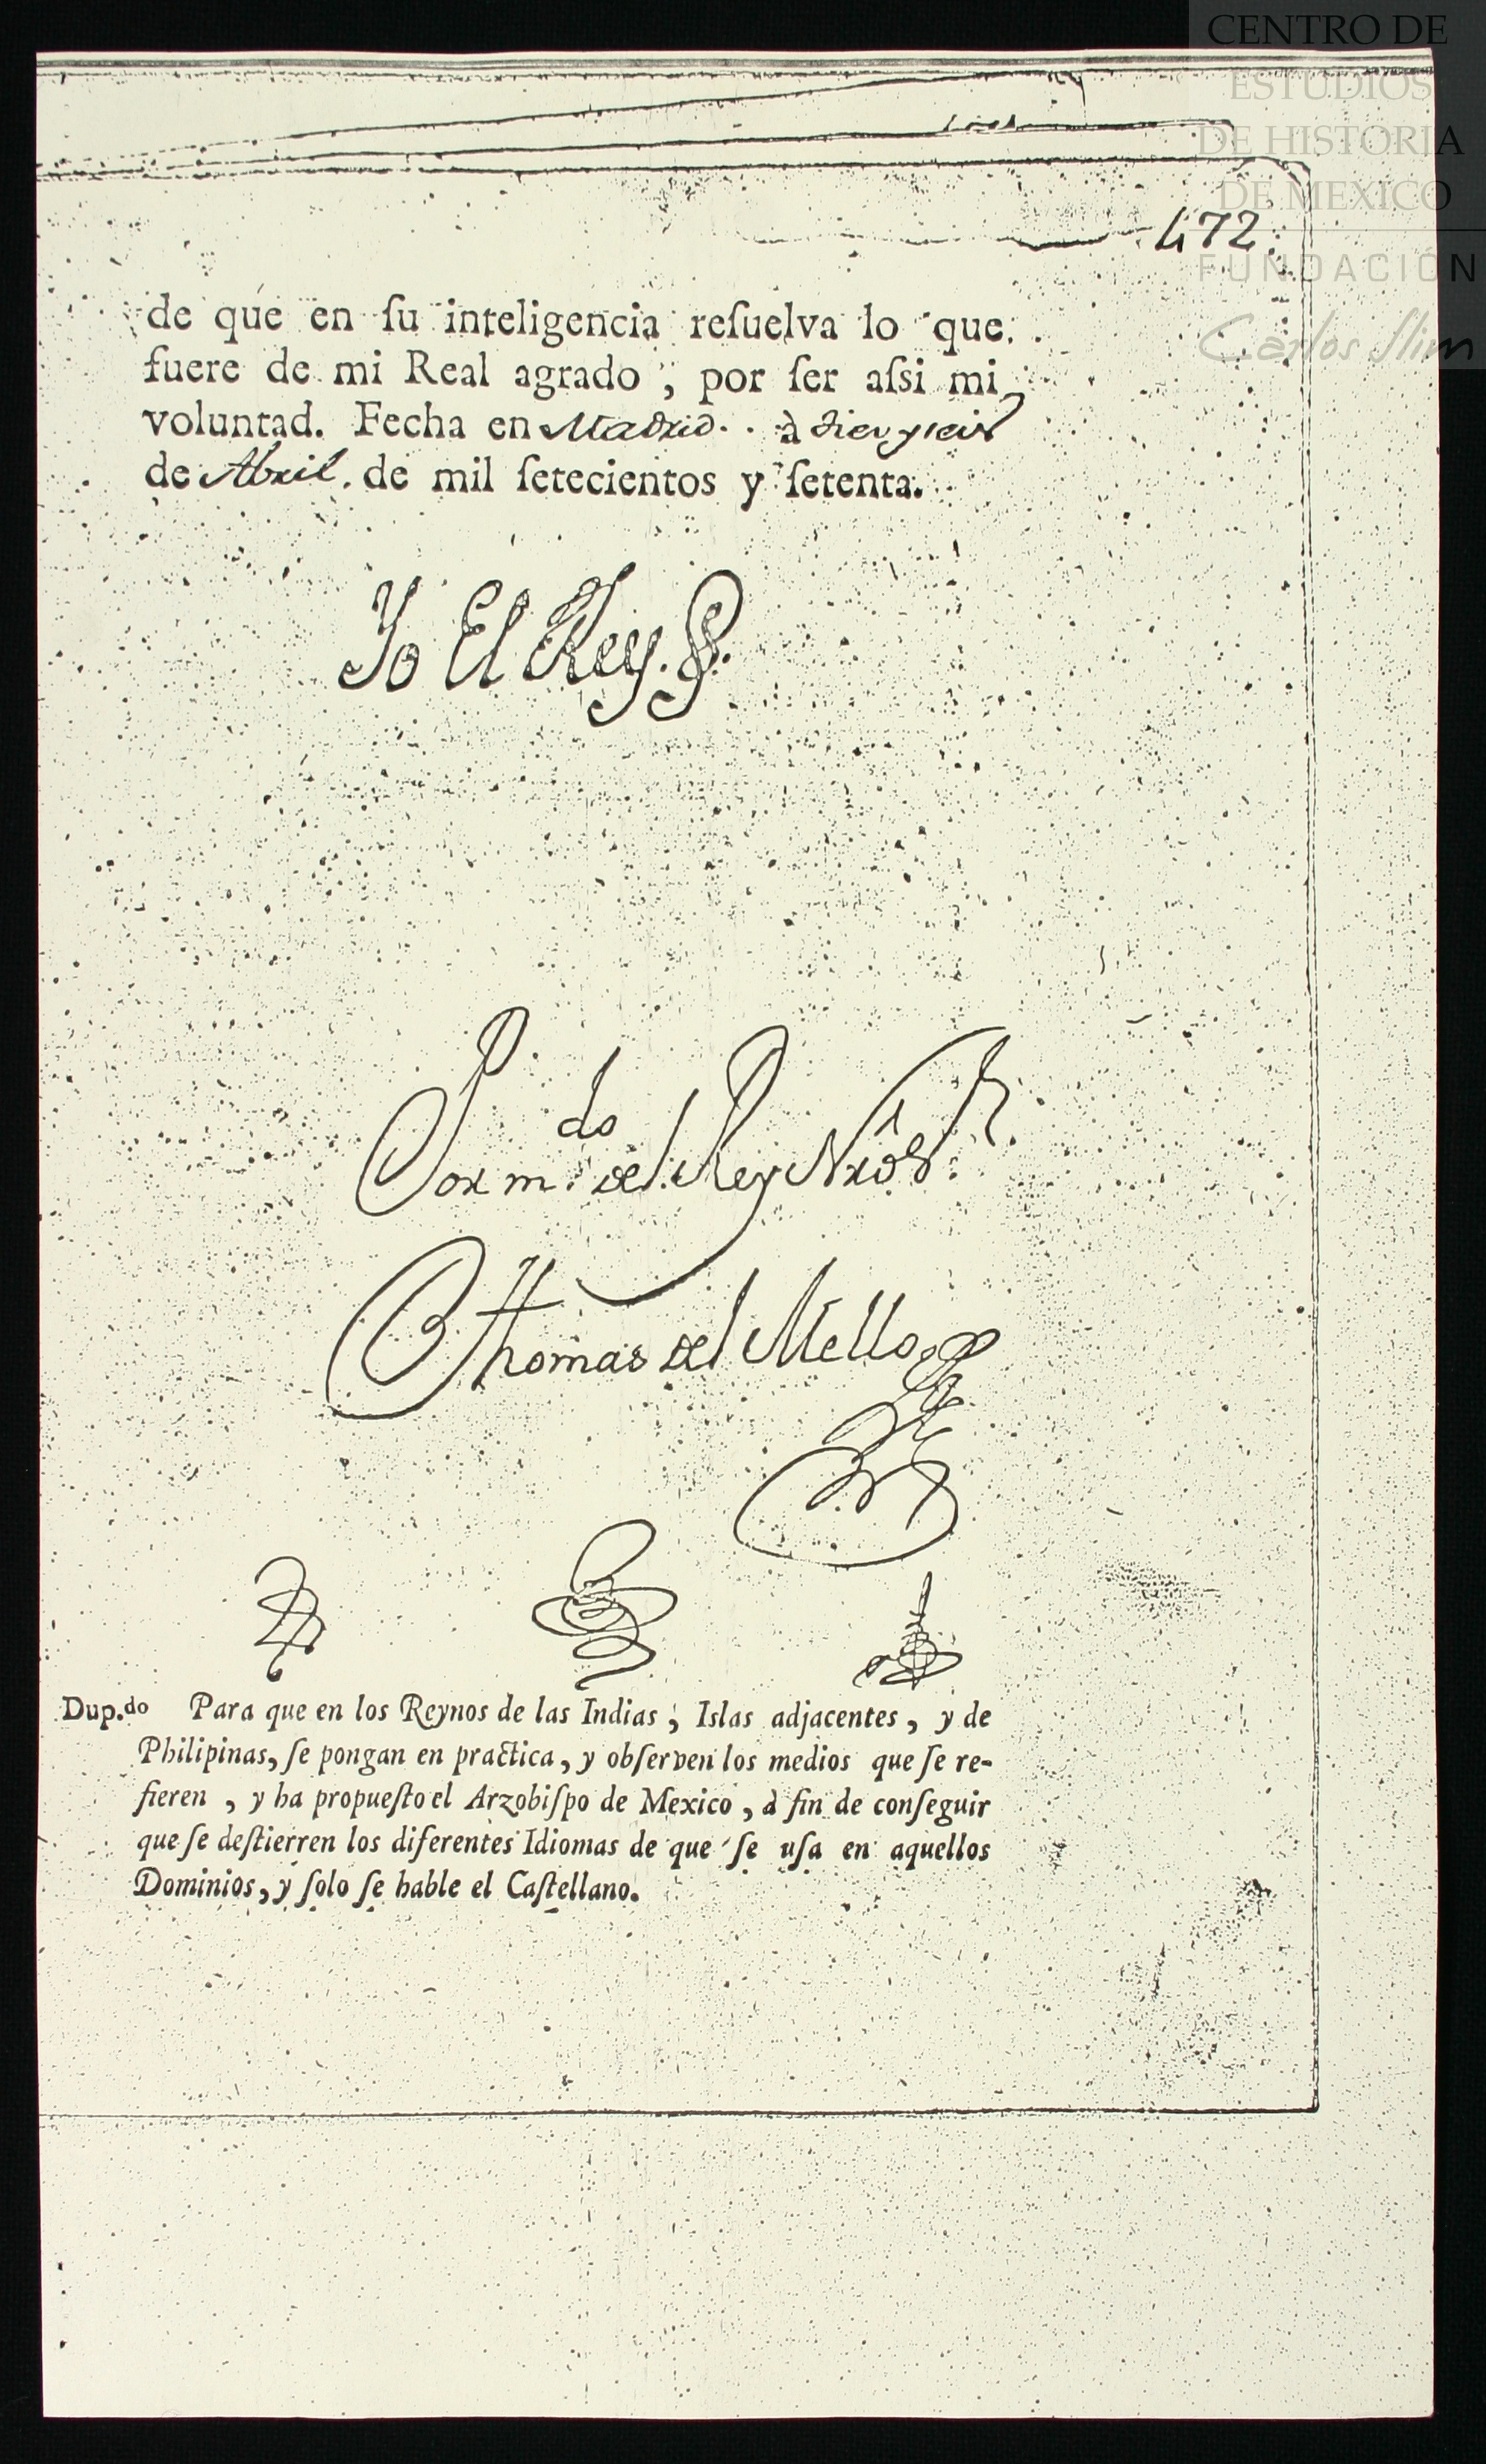 CENTRO DE
ESTUDIOS
DE HISTORIA
DE MEXICO
FUNDACIÓN
Carlos Slim
472
de que en ſu inteligencia reſuelva lo que
fuere de mi Real agrado, por ſer aſsi mi
voluntad. Fecha en Madrid. à diez y seis
de Abril. de mil ſetecientos y ſetenta.
Yo El Rey.
Por m.do del Rey Nrô S.r
Thomas del Mello
Dup.do Para que en los Reynos de las Indias, Islas adjacentes, y de
Philipinas, ſe pongan en practica, y obſerven los medios que ſe re-
fieren, y ha propueſto el Arzobiſpo de Mexico, à fin de conſeguir
que ſe deſtierren los diferentes Idiomas de que ſe uſa en aquellos
Dominios, y ſolo ſe hable el Caſtellano.